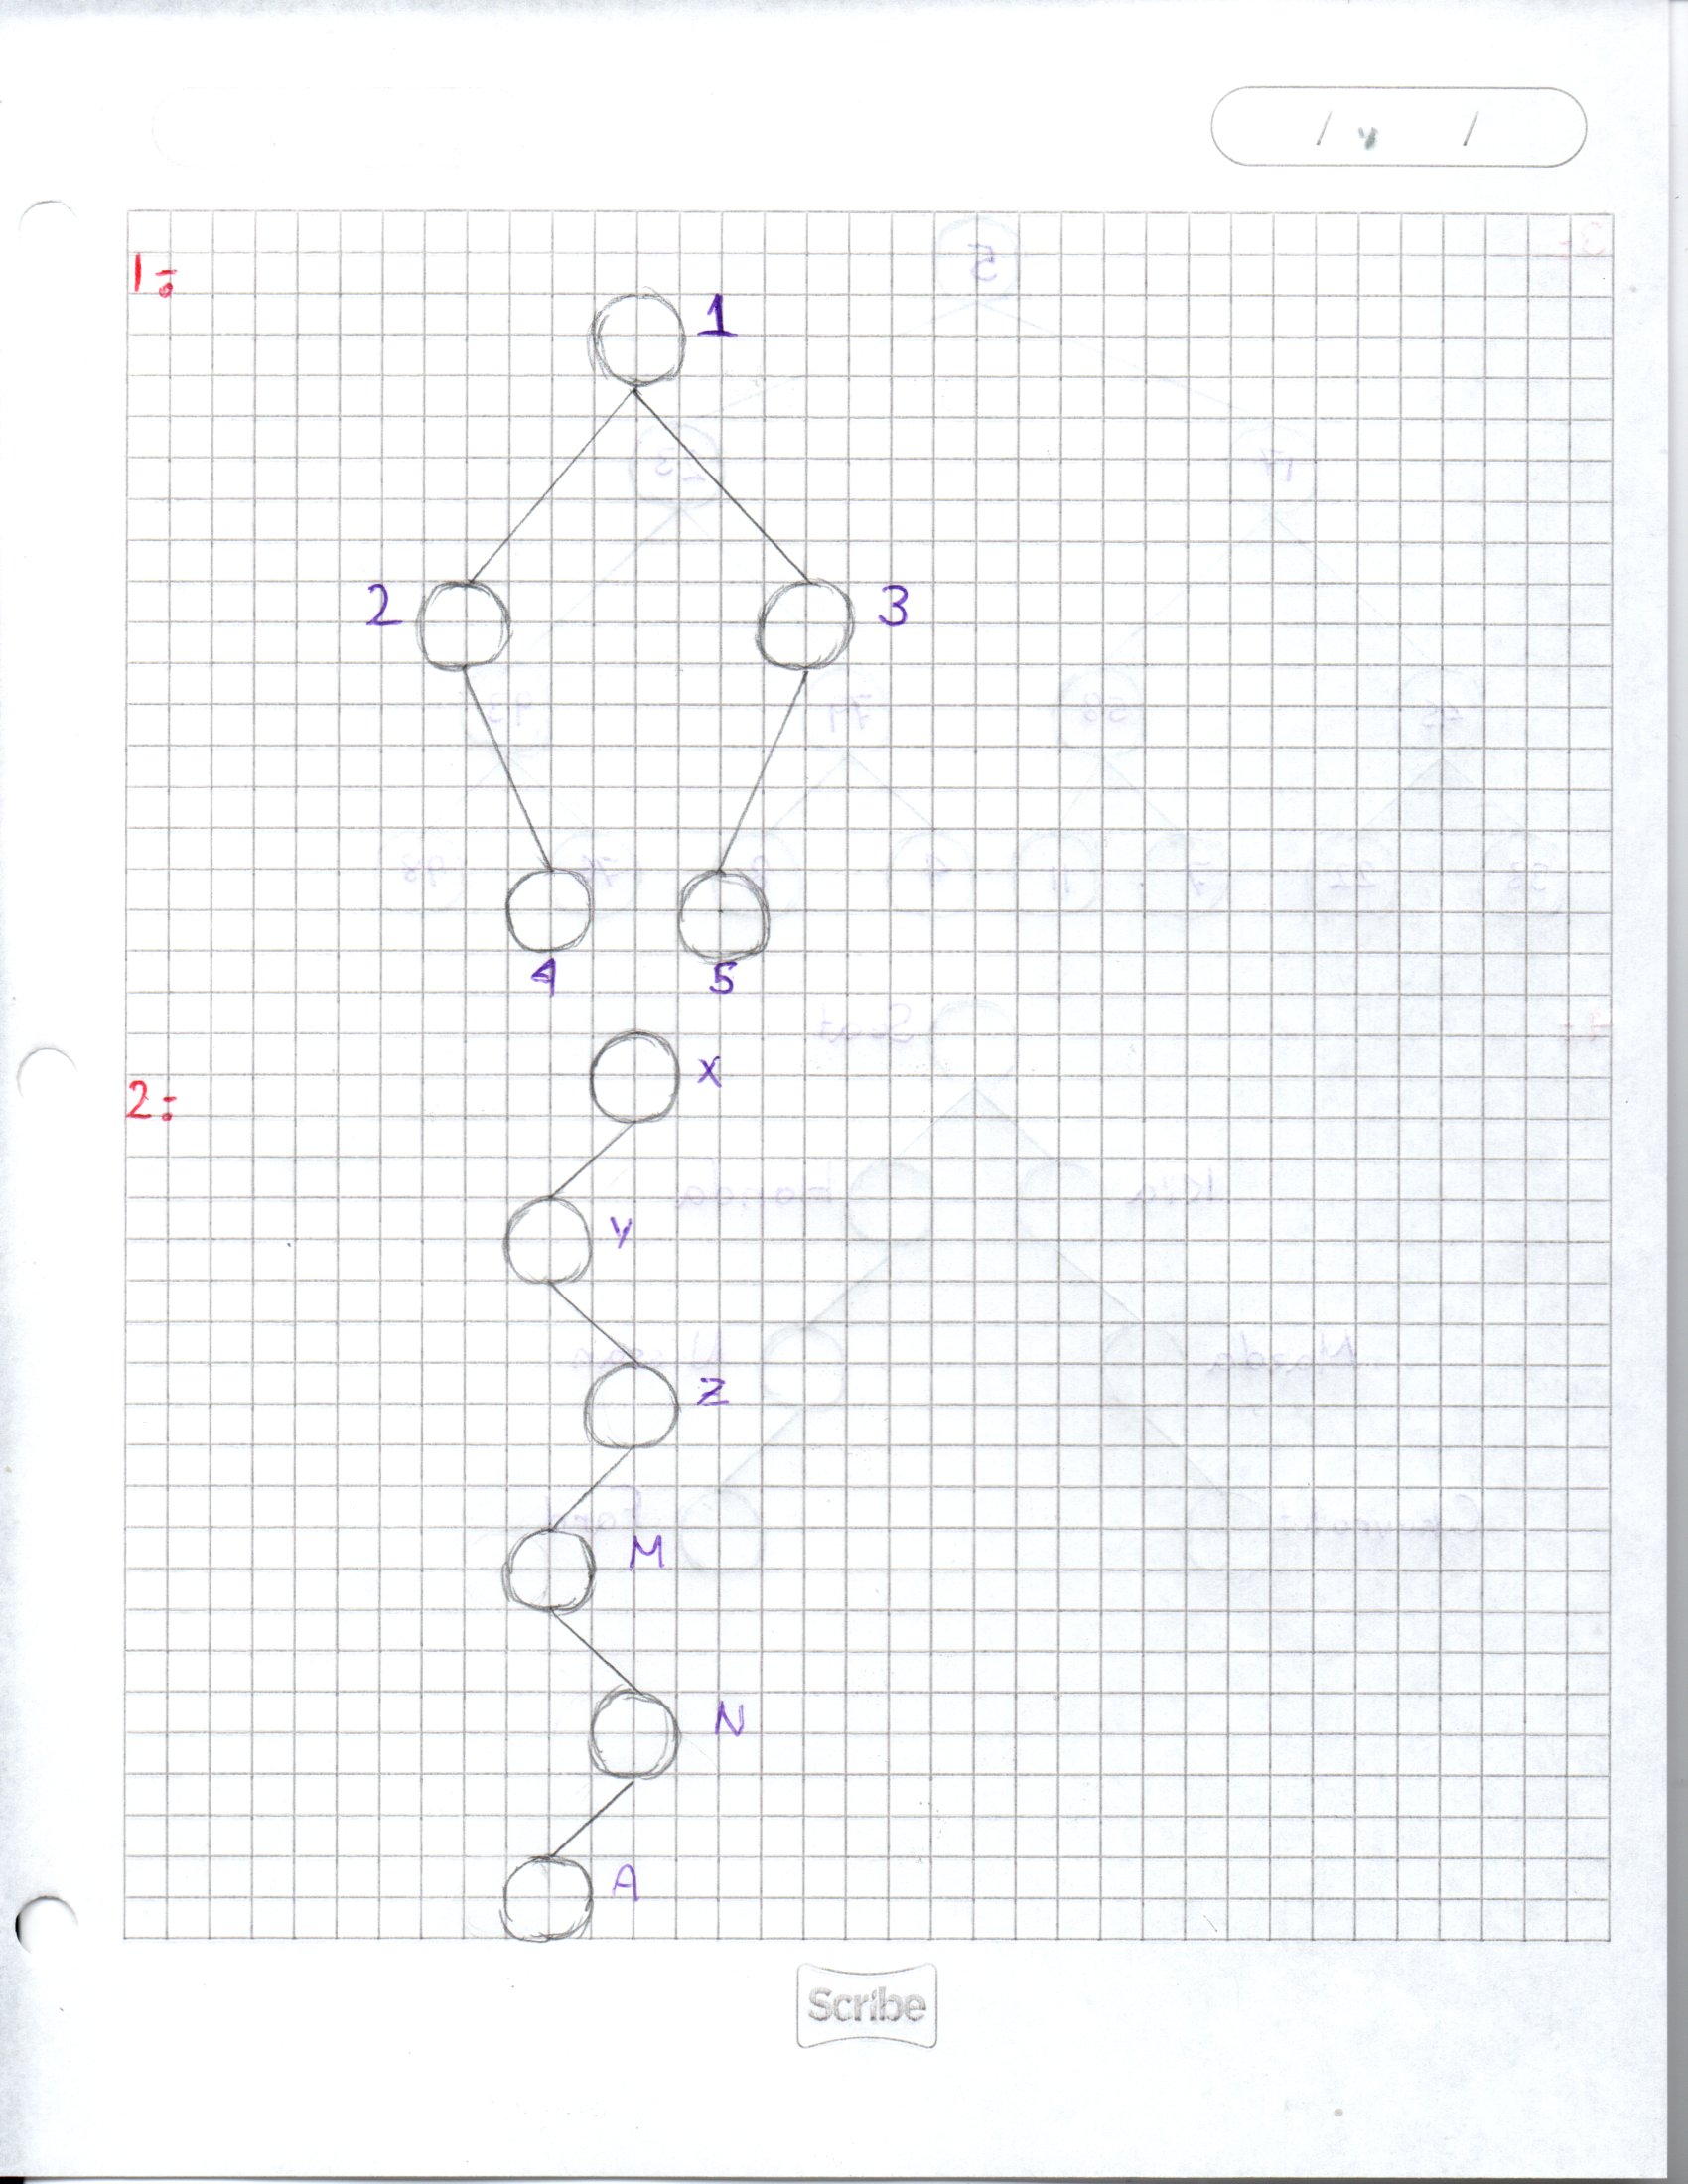 1:
1
2 3
4 5
2:
X
Y
Z
M
N
A
Scribe